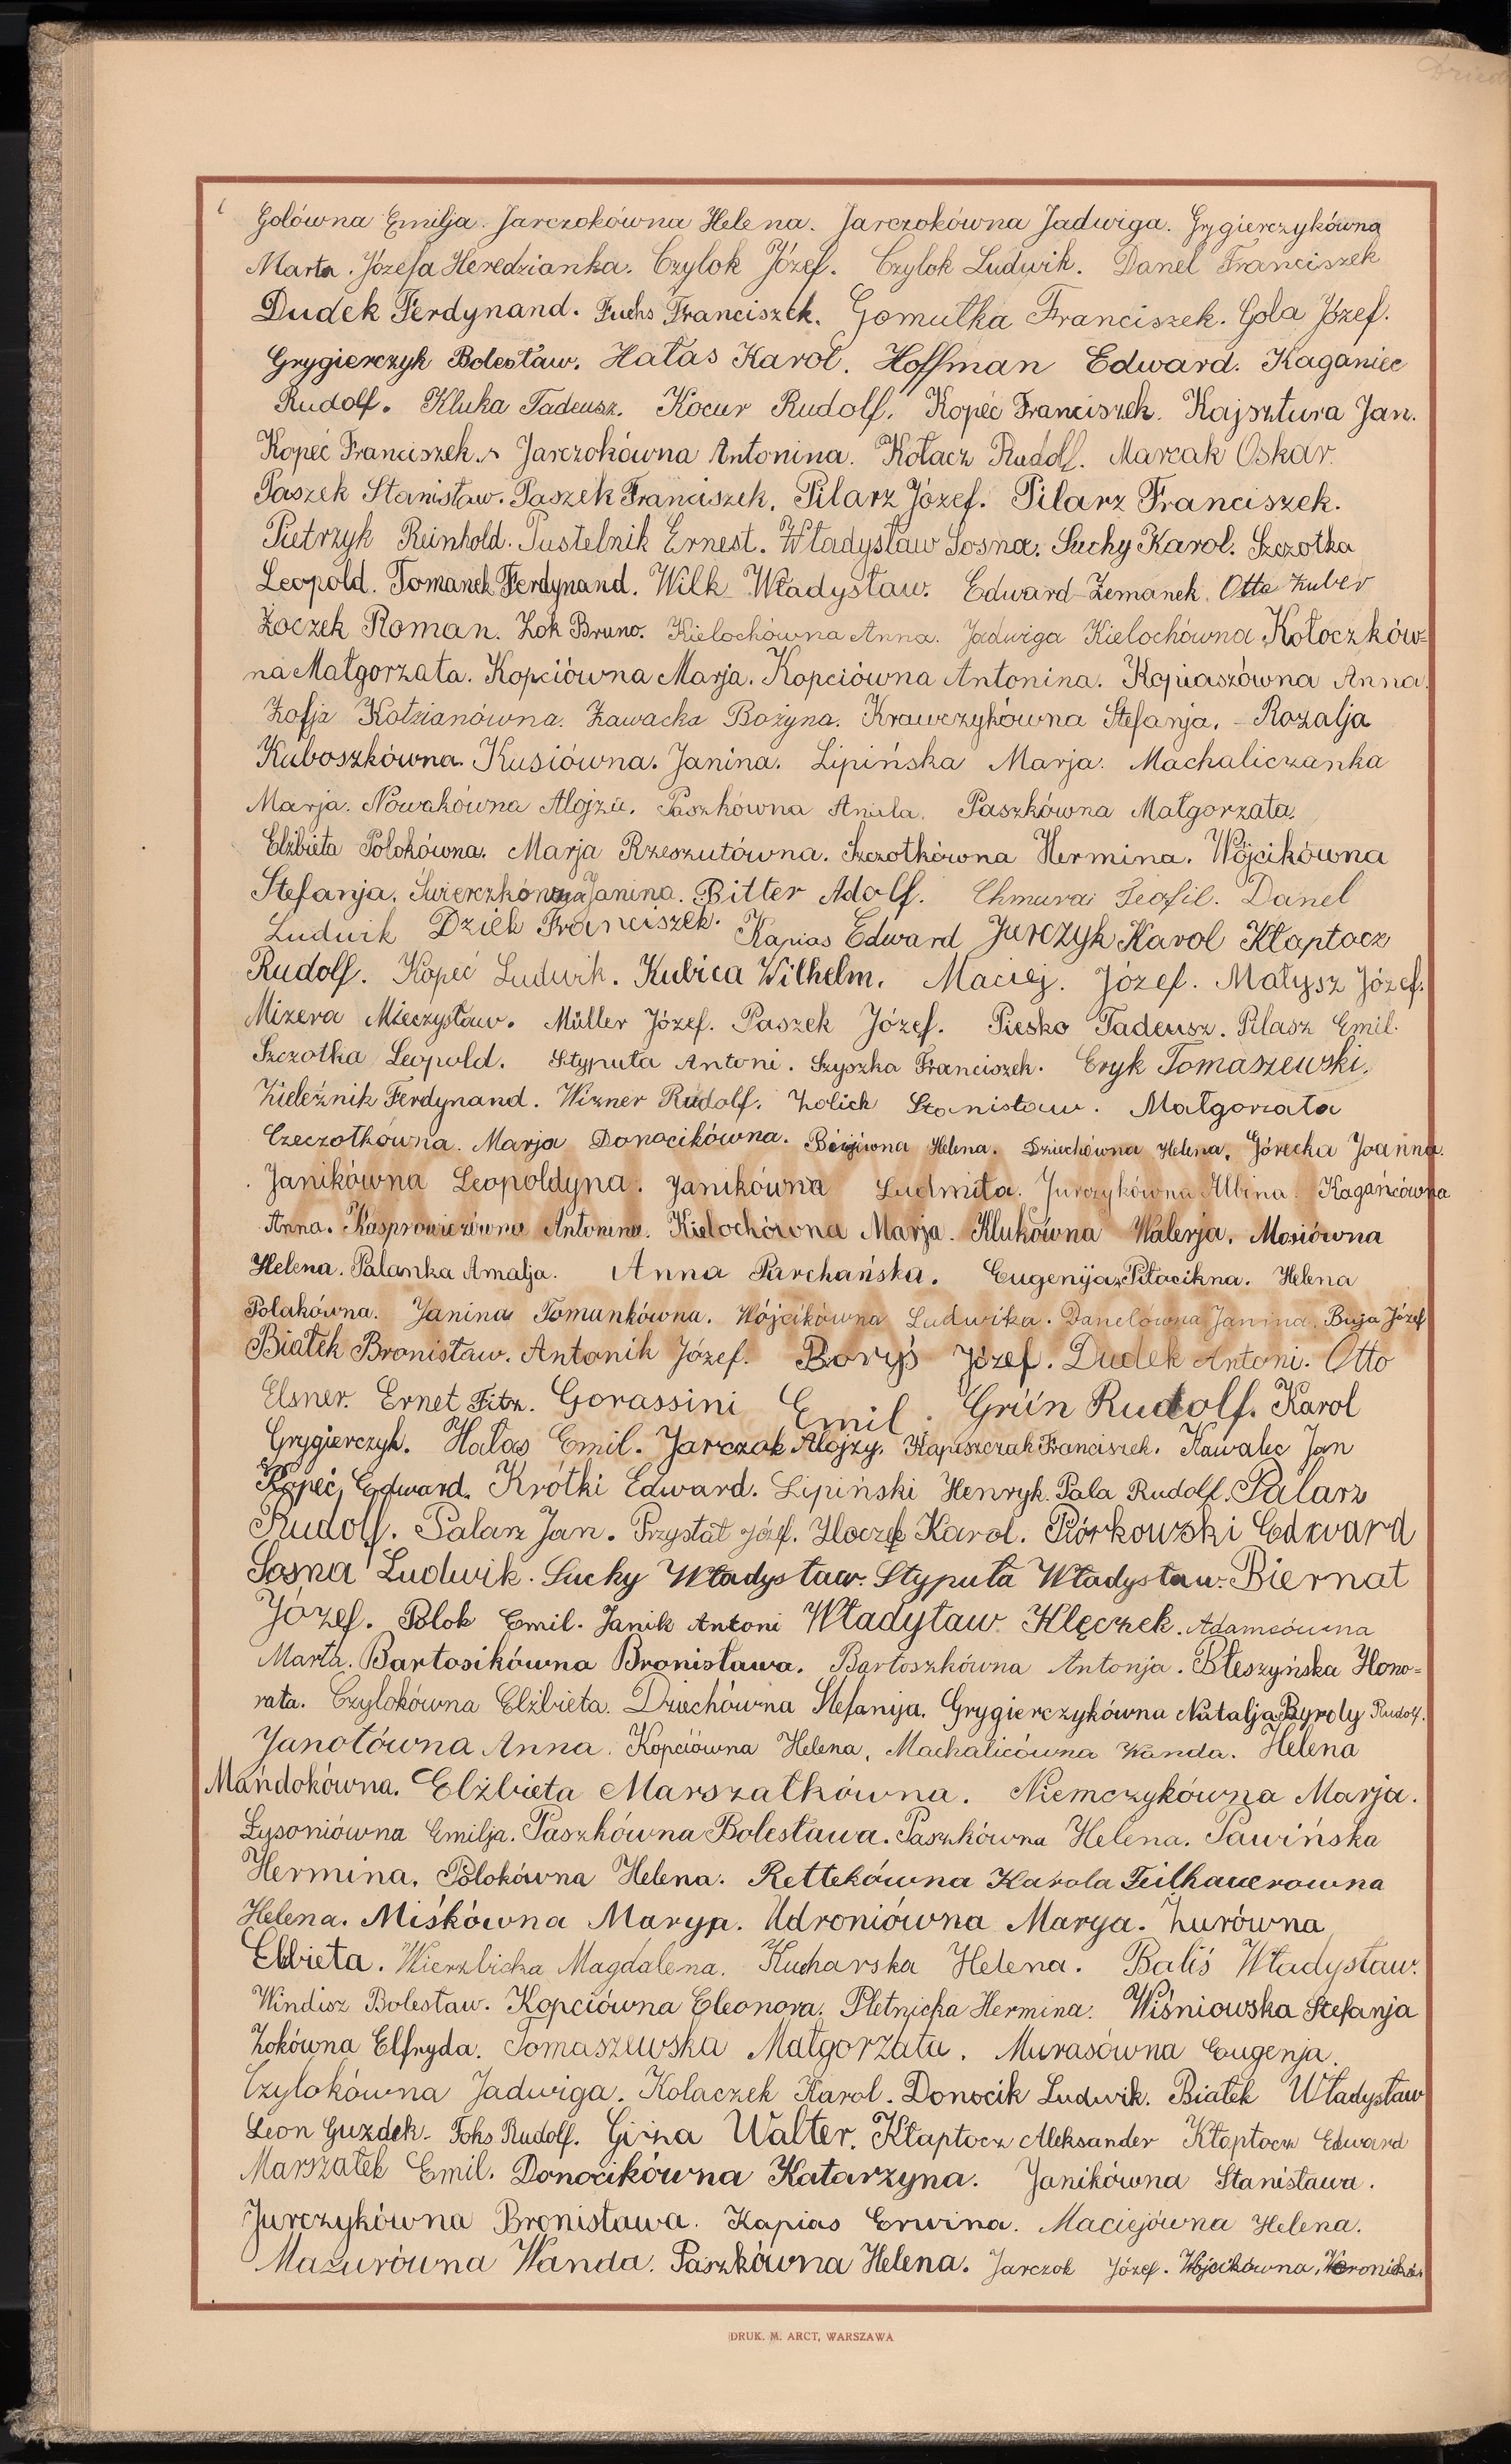 Dzied
Golówna Emilja. Jarczokówna Helena. Jarczokówna Jadwiga. Grygierczykówna
Marta. Józefa Heredzianka. Czylok Józef. Czylok Ludwik. Danel Franciszek
Dudek Ferdynand. Fuchs Franciszek. Gomułka Franciszek. Gola Józef.
Grygierczyk Bolesław. Hałas Karol. Hoffman Edward. Kaganiec
Rudolf. Kluka Tadeusz. Kocur Rudolf. Kopeć Franciszek. Kajsztura Jan.
Kopeć Franciszek. Jarczokówna Antonina. Kołacz Rudolf. Marcak Oskar.
Paszek Stanisław. Paszek Franciszek. Pilarz Józef. Pilarz Franciszek.
Pietrzyk Reinhold. Pustelnik Ernest. Władysław Sosna. Suchy Karol. Szczotka
Leopold. Tomanek Ferdynand. Wilk Władysław. Edward Zemanek. Otto Zuber
Żoczek Roman. Żok Bruno. Kielochówna Anna. Jadwiga Kielochówna Kołoczków-
na Małgorzata. Kopciówna Marja. Kopciówna Antonina. Kopiaszówna Anna.
Zofja Kotzianówna. Zawacka Bożyna. Krawczykówna Stefanja. Rozalja
Kuboszkówna. Kusiówna. Janina. Lipińska Marja. Machaliczanka
Marja. Nowakówna Alojza. Paszkówna Aniela. Paszkówna Małgorzata.
Elżbieta Polokówna. Marja Rzeszutówna. Szczotkówna Hermina. Wójcikówna
Stefanja. Świerczkówna Janina. Bitter Adolf. Chmura Teofil. Danel
Ludwik Dzieh Franciszek. Kapias Edward Jurczyk Karol Kłaptocz
Rudolf. Kopeć Ludwik. Kubica Wilhelm. Maciej. Józef. Małysz Józef.
Mizera Mieczysław. Müller Józef. Paszek Józef. Piesko Tadeusz. Pilasz Emil.
Szczotka Leopold. Stypuła Antoni. Szyszka Franciszek. Eryk Tomaszewski.
Zieleźnik Ferdynand. Wizner Rudolf. Żolich Stanisław. Małgorzata
Czeczotkówna. Marja Donocikówna. Helena. Dziechówna Helena. Górecka Joanna.
Janikówna Leopoldyna. Janikówna Ludmiła. Jurczykówna Albina. Kagańcówna
Anna. Kasprowiczówna Antonina. Kielochówna Marja. Klukówna Walerja. Mosiówna
Helena. Palanka Amalja. Anna Parchańska. Eugenija Piłacikna. Helena
Polakówna. Janina Tomankówna. Wójcikówna Ludwika. Danelówna Janina. Buja Józef
Białek Bronisław. Antonik Józef. Boryś Józef. Dudek Antoni. Otto
Elsner. Ernet Fitz. Gorassini Emil. Grün Rudolf. Karol
Grygierczyk. Hałas Emil. Jarczok Alojzy. Kapuszczak Franciszek. Kawalec Jan
Kopeć Edward. Krótki Edward. Lipiński Henryk. Pala Rudolf. Palarz
Rudolf. Palarz Jan. Przystał Józef. Płoczek Karol. Piórkowski Edward
Sosna Ludwik. Suchy Władysław. Stypuła Władysław. Biernat
Józef. Polok Emil. Janik Antoni Władytaw. Klęczek. Adamcówna
Marta. Bartosikówna Bronisława. Bartoszkówna Antonja. Błeszyńska Hono-
rata. Czylokówna Elżbieta. Dziechówna Stefanija. Grygierczykówna Natalja. Byrdy Rudolf.
Janotówna Anna. Kopciówna Helena, Machalicówna Wanda. Helena
Mańdokówna. Elżbieta Marszałkówna. Niemczykówna Marja.
Łysoniówna Emilja. Paszkówna Bolesława. Paszkówna Helena. Pawińska
Hermina. Polokówna Helena. Rettekówna Karola Feilhauerowna
Helena. Miśkówna Maryja. Udroniówna Marya. Żurówna
Elżbieta. Wierzbicka Magdalena. Kucharska Helena. Baliś Władysław.
Windisz Bolesław. Kopciówna Eleonora. Pletnicka Hermina. Wiśniowska Stefanja
Żokówna Elfryda. Tomaszewska Małgorzata. Murasówna Eugenja.
Czylokówna Jadwiga. Kolaczek Karol. Donocik Ludwik. Białek Władysław
Leon Guzdek. Foks Rudolf. Girza Walter. Kłaptocz Aleksander Kłaptocz Edward
Marszałek Emil. Donocikówna Katarzyna. Janikówna Stanisława.
Jurczykówna Bronisława. Kapias Erwina. Maciejówna Helena.
Mazurówna Wanda. Paszkówna Helena. Jarczok Józef. Wójcikówna, Weronika
DRUK. M. ARCT, WARSZAWA